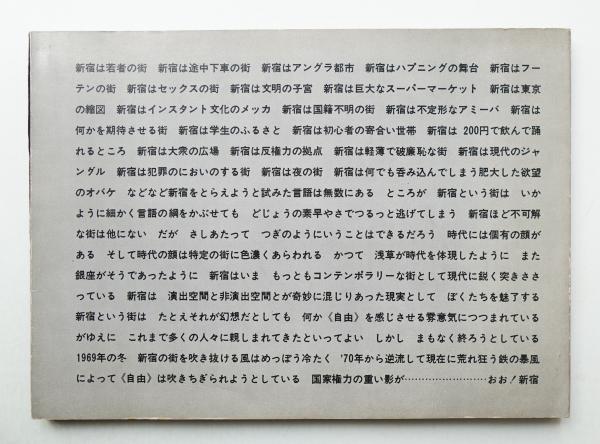 新宿は若者の街　新宿は途中下車の街　新宿はアングラ都市　新宿はハプニングの舞台　新宿はフー
テンの街　新宿はセックスの街　新宿は文明の子宮　新宿は巨大なスーパーマーケット　新宿は東京
の縮図　新宿はインスタント文化のメッカ　新宿は国籍不明の街　新宿は不定形なアミーバ　新宿は
何かを期待させる街　新宿は学生のふるさと　新宿は初心者の寄合い世帯　新宿は 200円で飲んで踊
れるところ　新宿は大衆の広場　新宿は反権力の拠点　新宿は軽薄で破廉恥な街　新宿は現代のジャ
ングル　新宿は犯罪のにおいのする街　新宿は夜の街　新宿は何でも呑み込んでしまう肥大した欲望
のオバケ　などなど新宿をとらえようと試みた言語は無数にある　ところが　新宿という街は　いか
ように細かく言語の網をかぶせても　どじょうの素早やさでつるっと逃げてしまう　新宿ほど不可解
な街は他にない　だが　さしあたって　つぎのようにいうことはできるだろう　時代には個有の顔が
ある　そして時代の顔は特定の街に色濃くあらわれる　かつて　浅草が時代を体現したように　また
銀座がそうであったように　新宿はいま　もっともコンテンポラリーな街として現代に鋭く突きささ
っている　新宿は　演出空間と非演出空間とが奇妙に混じりあった現実として　ぼくたちを魅了する
新宿という街は　たとえそれが幻想だとしても　何か《自由》を感じさせる雰意気につつまれている
がゆえに　これまで多くの人々に親しまれてきたといってよい　しかし　まもなく終ろうとしている
1969年の冬　新宿の街を吹き抜ける風はめっぽう冷たく　'70年から逆流して現在に荒れ狂う鉄の暴風
によって《自由》は吹きちぎられようとしている　国家権力の重い影が……………………おお！新宿